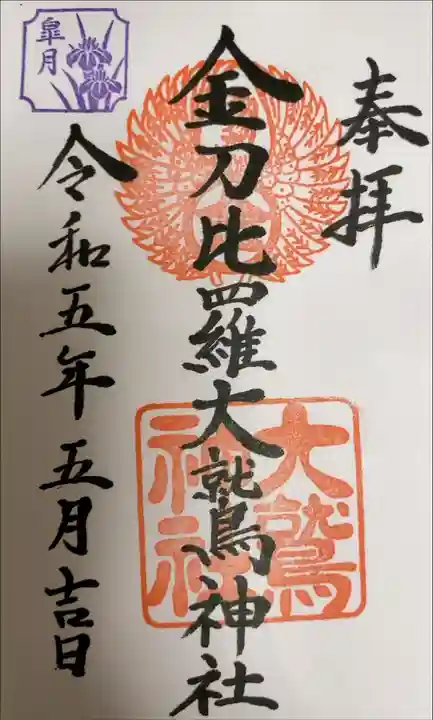 奉拝
金刀比羅大鷲神社
大鷲
神社
皐月
令和五年五月吉日